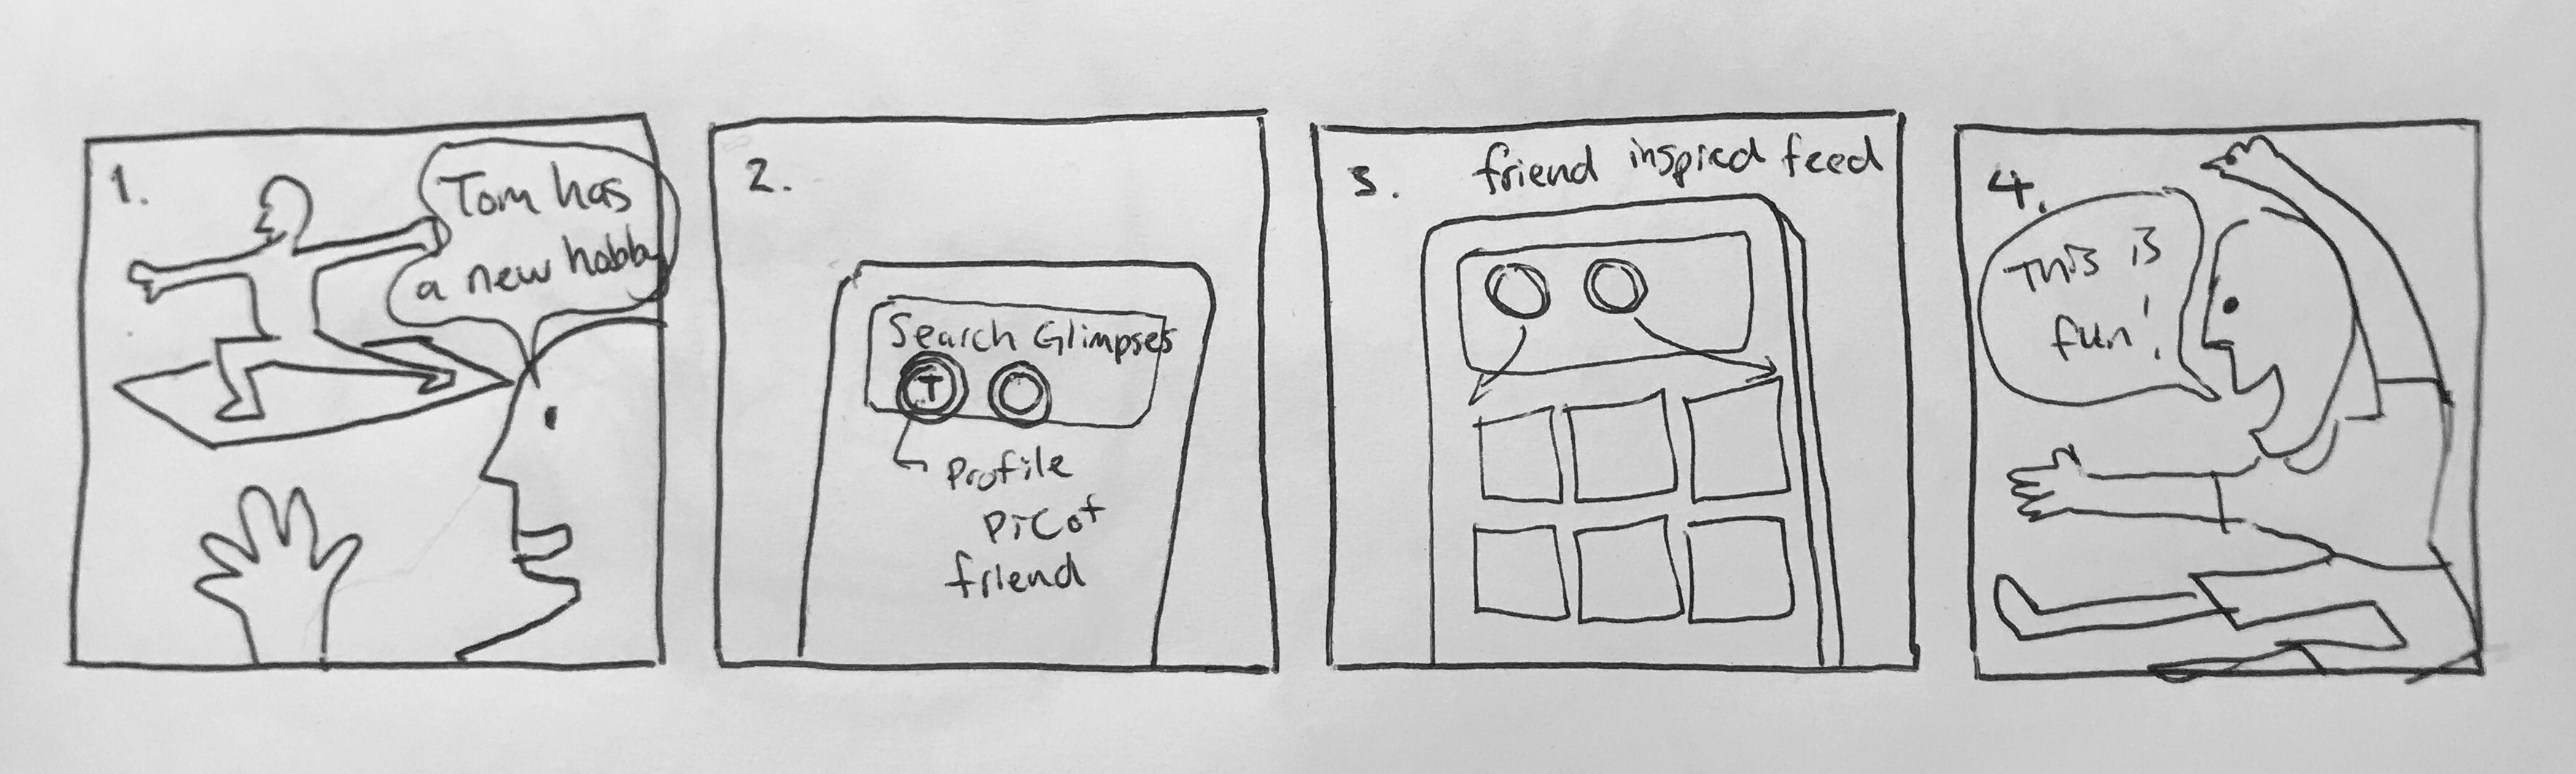 1.
Tom has
a new hobby
2.
Search Glimpses
T
Profile
Pic of
friend
3.
friend inspied feed
4.
This is
fun!